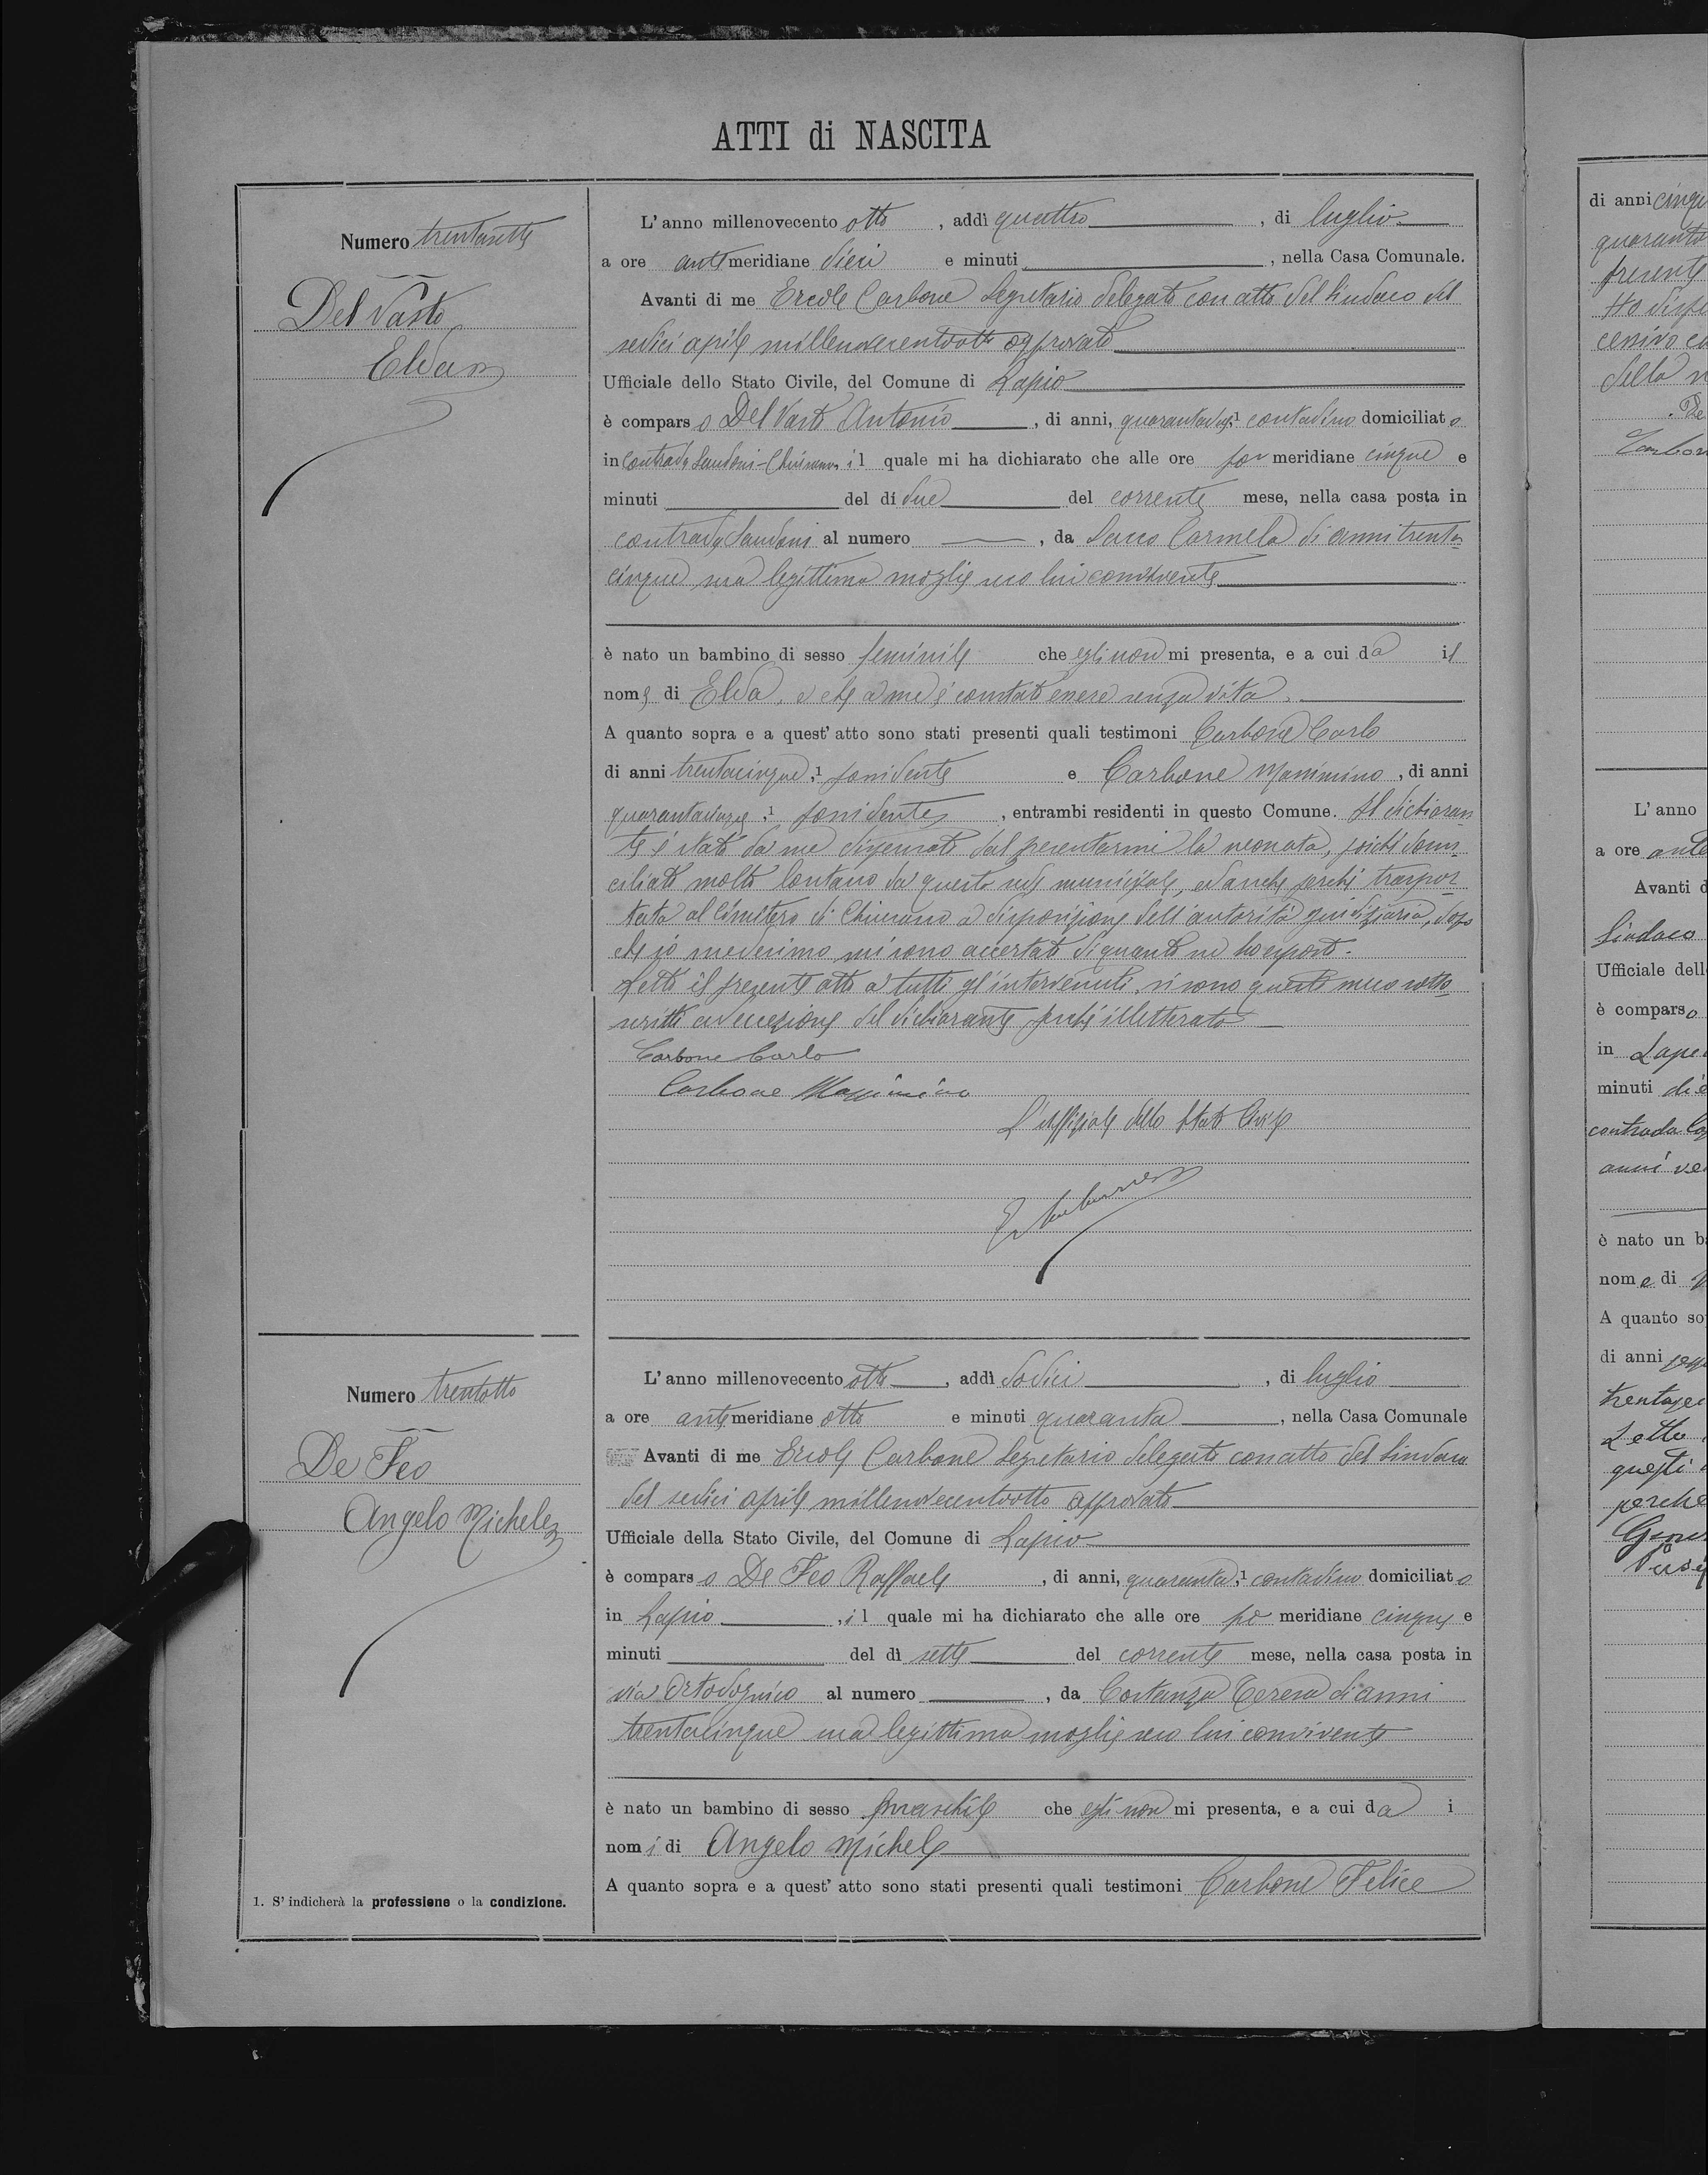 ATTI di NASCITA
Numero trentasette
Del Vasto
Elda
L' anno millenovecento otto, addì quattro, di luglio
a ore antimeridiane dieci e minuti , nella Casa Comunale.
Avanti di me Ercole Carbone Segretario delegato con atto del Sindaco del
sedici aprile millenovecentootto approvato
Ufficiale dello Stato Civile, del Comune di Lapio
è comparso Del Vasto Antonio, di anni, quarantadue,1 contadino domiciliato
in Contrada il quale mi ha dichiarato che alle ore pomeridiane cinque e
minuti del dì due del corrente mese, nella casa posta in
contrada al numero , da Carmela di anni trenta
cinque sua legittima moglie seco lui convivente
è nato un bambino di sesso feminile che egli non mi presenta, e a cui dà il
nome di Elda, e che a me è constato essere senza vita.
A quanto sopra e a quest' atto sono stati presenti quali testimoni Carbone Carlo
di anni trentacinque,1 possidente e Carbone Massimino, di anni
,1 possidente, entrambi residenti in questo Comune. Il dichiaran
te è stato da me dispensato dal presentarmi la neonata, poichè domi
ciliato molto lontano da questa sede municipale, ed anche perchè traspor
tata al Cimitero di Chiusano a disposizione dell'autorità giudiziaria, dopo
che io medesimo mi sono accertato di quanto ne ho esposto.
Letto il presente atto a tutti gl'intervenuti, si sono questi meco sotto
scritti ad eccezione del dichiarante perchè illetterato
Carbone Carlo
Carbone Massimino
L'Uffiziale dello Stato Civile
Numero trentotto
De Feo
Angelo Michele
L' anno millenovecento otto, addì dodici, di luglio
a ore antimeridiane otto e minuti quaranta, nella Casa Comunale
Avanti di me Ercole Carbone Segretario delegato con atto del Sindaco
del sedici aprile millenovecentootto approvato
Ufficiale della Stato Civile, del Comune di Lapio
è comparso De Feo Raffaele, di anni, quaranta,1 contadino domiciliato
in Lapio, il quale mi ha dichiarato che alle ore pomeridiane cinque e
minuti del dì sette del corrente mese, nella casa posta in
via al numero , da Costanza Teresa di anni
trentacinque sua legittima moglie seco lui convivente
è nato un bambino di sesso maschile che egli non mi presenta, e a cui dà i
nomi di Angelo Michele
A quanto sopra e a quest' atto sono stati presenti quali testimoni Carbone Felice
1. S' indicherà la professione o la condizione.
di anni
quaranta
presente
della
L' anno
a ore ante
Avanti d
Sindaco
Ufficiale dell
è comparso
in
minuti
contrada
anni
è nato un b
nome di
A quanto so
di anni
Letto
questi
perchè